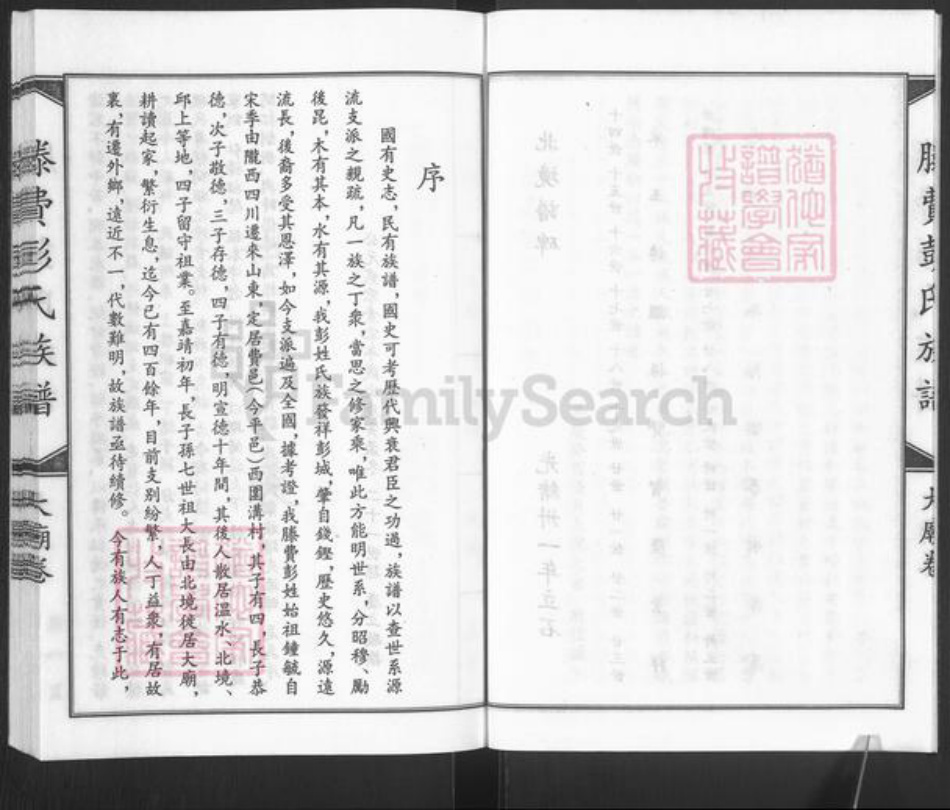 滕費彭氏族譜
大廟卷
猶他家
譜學會
收藏
序
國有史志，民有族譜，國史可考歷代興衰君臣之功過，族譜以查世系源
流支派之親疏，凡一族之丁衆，當思之修家乘，唯此方能明世系，分昭穆、勵
後昆，木有其本，水有其源，我彭姓氏族發祥彭城，肇自錢鏗，歷史悠久，源遠
流長，後裔多受其恩澤，如今支派遍及全國，據考證，我滕費彭姓始祖鍾毓自
宋季由隴西四川遷來山東，定居費邑(今平邑)西圍溝村，其子有四，長子恭
德，次子敬德，三子存德，四子有德，明宣德十年間，其後人散居温水、北境、
邱上等地，四子留守祖業。至嘉靖初年，長子孫七世祖大長由北境徙居大廟，
耕讀起家，繁衍生息，迄今已有四百餘年，目前支別紛繁，人丁益衆，有居故
裏，有遷外鄉，遠近不一，代數難明，故族譜亟待續修。今有族人有志于此，
猶他家
譜學會
收藏
滕費彭氏族譜
大廟卷
FamilySearch